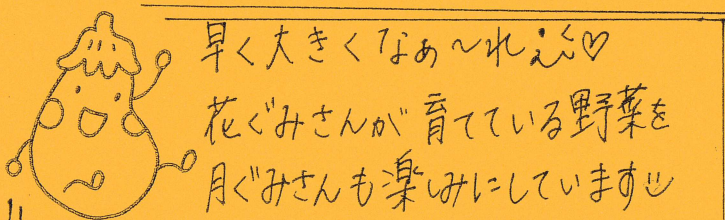 早く大きくなぁ〜れ♡
花ぐみさんが育てている野菜を
月ぐみさんも楽しみにしています